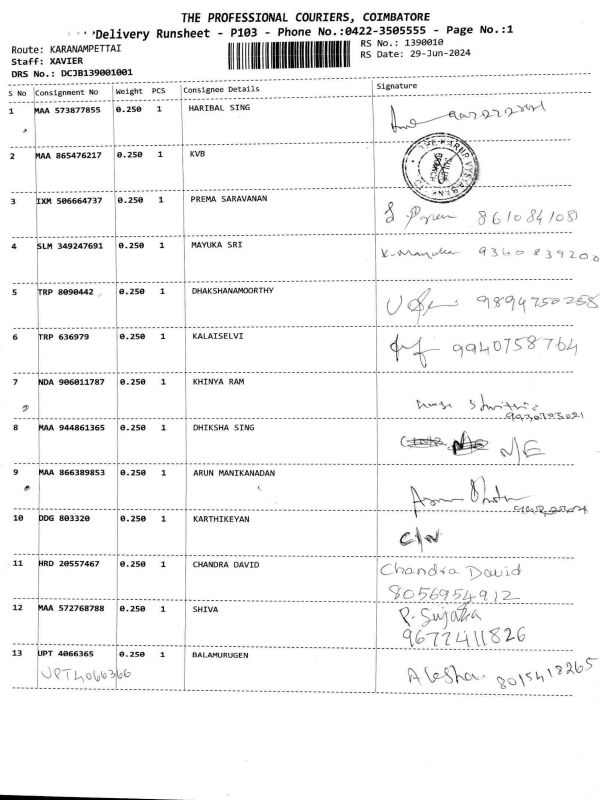 THE PROFESSIONAL COURIERS, COIMBATORE
Delivery Runsheet - P103 - Phone No.:0422-3505555 - Page No.:1
Route: KARANAMPETTAI
RS No.: 1390010
Staff: XAVIER
RS Date: 29-Jun-2024
DRS No.: DCJB139001001
S No Consignment No Weight PCS Consignee Details Signature
1 MAA 573877855 0.250 1 HARIBAL SING
2 MAA 865476217 0.250 1 KVB
3 IXM 506664737 0.250 1 PREMA SARAVANAN 8610841081
4 SLM 349247691 0.250 1 MAYUKA SRI K-Mayuka 9360839200
5 TRP 8090442 0.250 1 DHAKSHANAMOORTHY 9894750258
6 TRP 636979 0.250 1 KALAISELVI 9940758764
7 NDA 906011787 0.250 1 KHINYA RAM
8 MAA 944861365 0.250 1 DHIKSHA SING N/E
9 MAA 866389853 0.250 1 ARUN MANIKANADAN
10 DDG 803320 0.250 1 KARTHIKEYAN C/N
11 HRD 20557467 0.250 1 CHANDRA DAVID Chandra David
8056954912
12 MAA 572768788 0.250 1 SHIVA P. Sujatha
9677411826
13 UPT 4066365 0.250 1 BALAMURUGEN 8015418265
UPT4066366